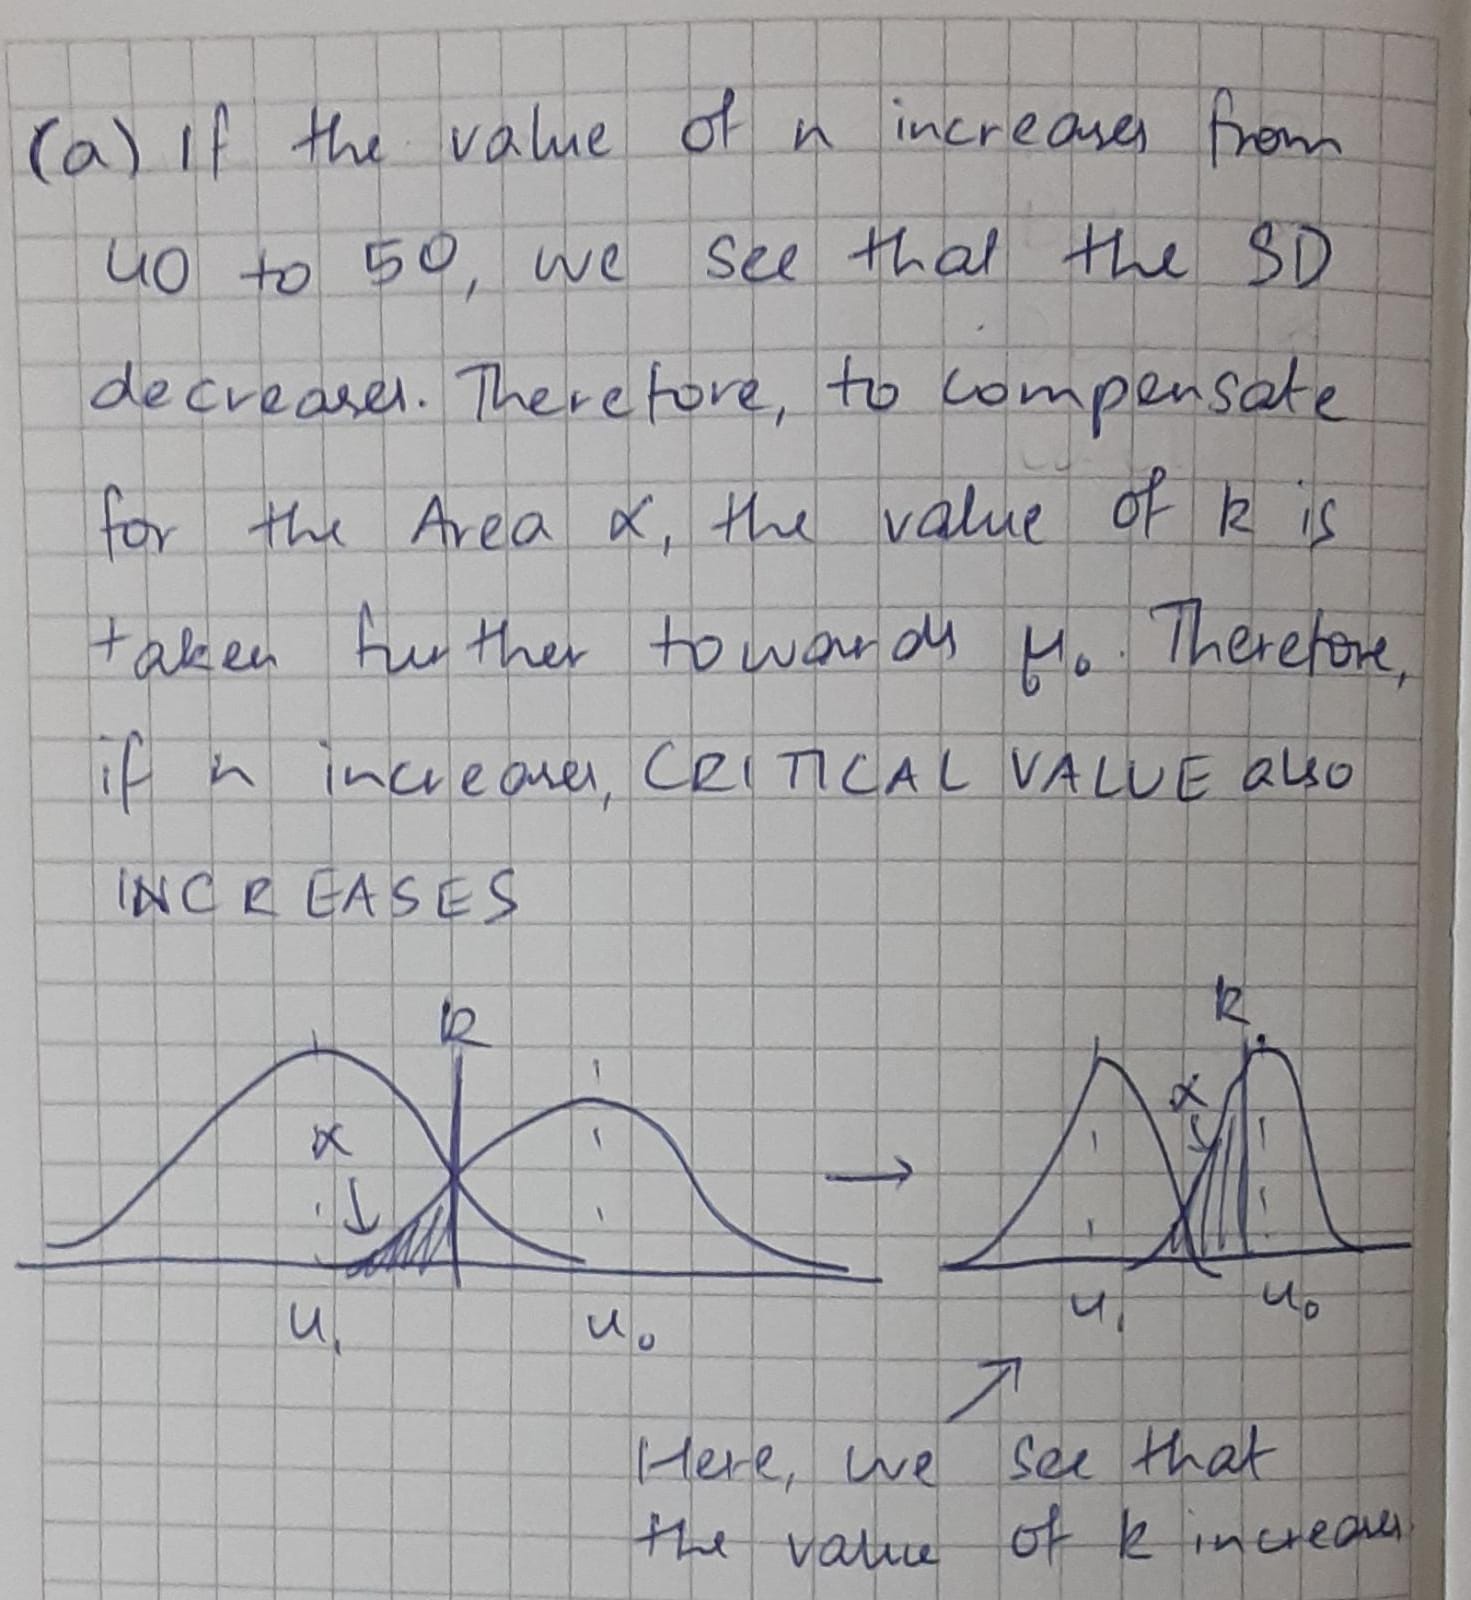 (a) If the value of n increases from
40 to 50, we see that the SD
decreases. Therefore, to compensate
for the Area α, the value of k is
taken further towards μ₀. Therefore,
if n increases, CRITICAL VALUE also
INCREASES
k
k
α
α
u₁
u₀
u₁
u₀
Here, we see that
the value of k increases